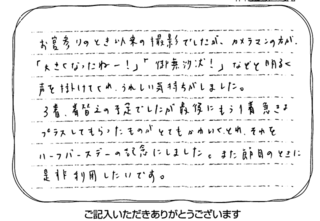 お宮参りのとき以来の撮影でしたが、カメラマンの方が、
「大きくなったねー!」「御無沙汰!」などと明るく
声を掛けてくれ、うれしい気持ちがしました。
3着、着替えの予定でしたが最後にもう1着急きょ
プラスしてもらったものがとてもかわいくとれ、それを
ハーフバースデーの記念にしました。また節目のときに
是非利用したいです。
ご記入いただきありがとうございます